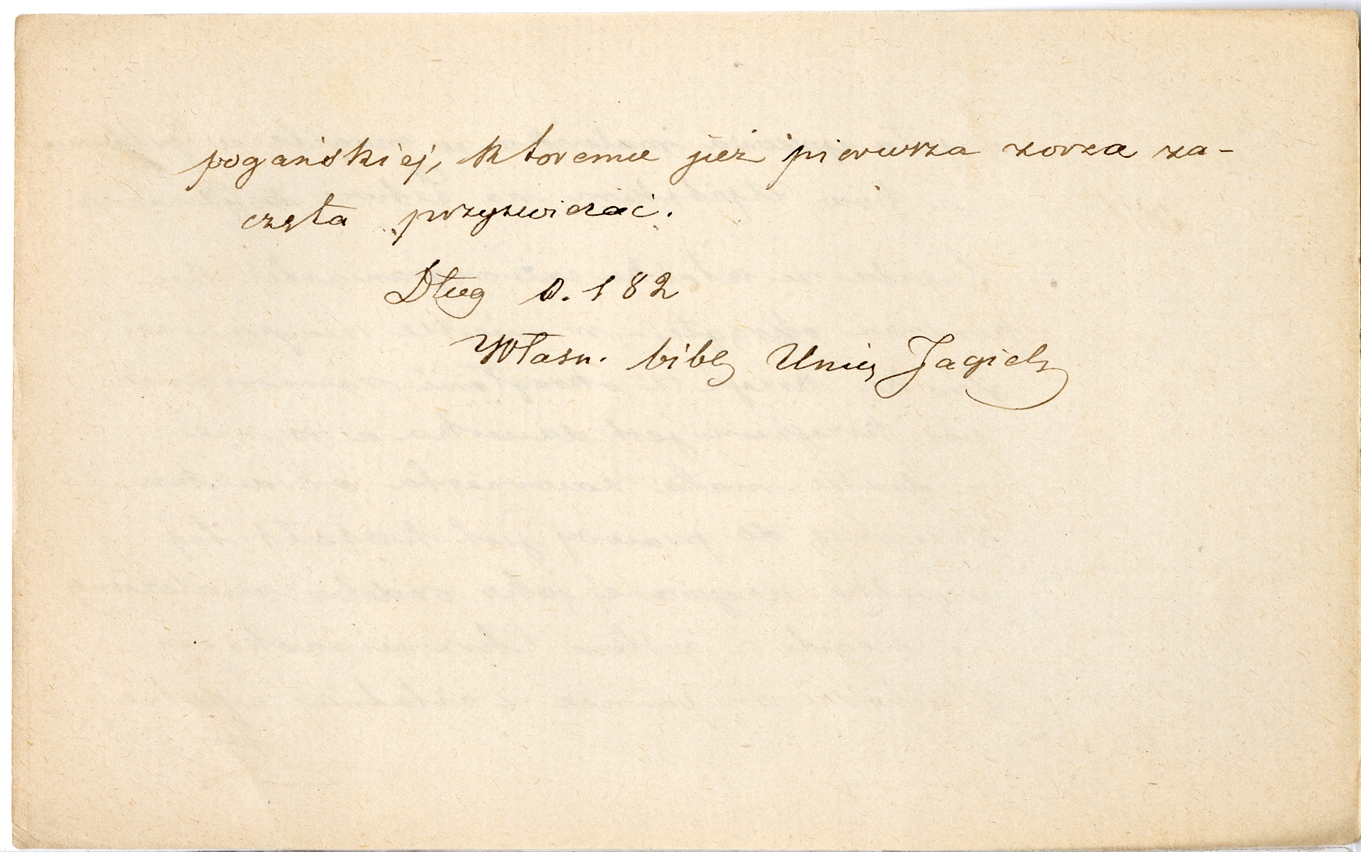 pogańskiej, któremu już pierwsza zorza za-
częła przyświecać.
Dług s. 182
Własn. bibl Uniw Jagiel